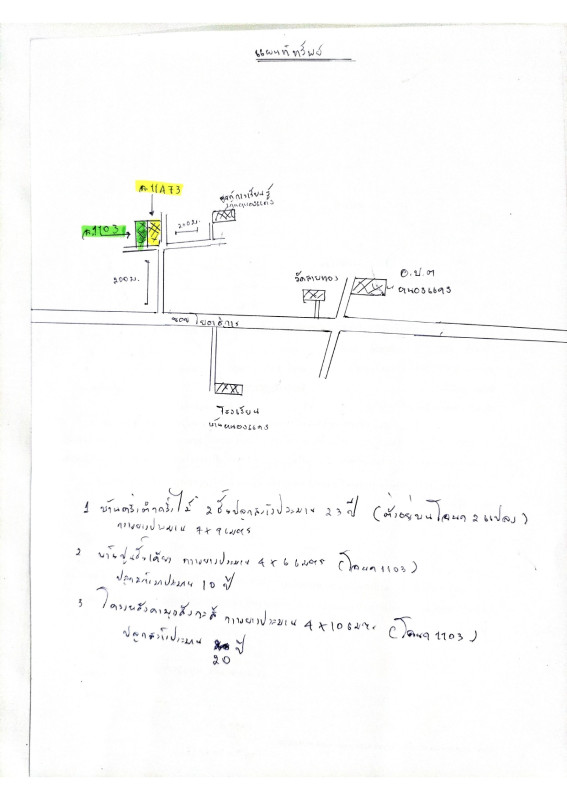 แผนที่ทรัพย์
ฉ.11A73
ศูนย์การเรียนรู้
ฉ.1103
200 ม.
200 ม.
วัดลานทอง
อ.บ.ต
หนองแสง
ซอย โยธาธิการ
โรงเรียน
บ้านหนองแสง
1 บ้านครึ่งตึกครึ่งไม้ 2 ชั้นปลูกสร้างประมาณ 23 ปี (ตั้งอยู่บนโฉนด 2 แปลง)
กว้างยาวประมาณ 7 x 9 เมตร
2 บ้านปูนชั้นเดียว กว้างยาวประมาณ 4 x 6 เมตร (โฉนด 1103)
ปลูกสร้างประมาณ 10 ปี
3 โครงหลังคามุงสังกะสี กว้างยาวประมาณ 4 x 10 เมตร (โฉนด 1103)
ปลูกสร้างประมาณ ปี
20